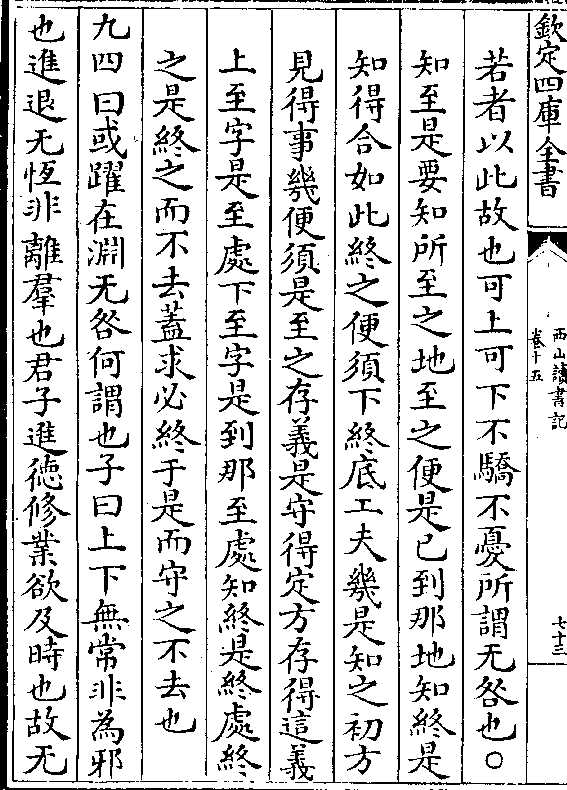 欽定四庫全書
西山讀書記
卷十五
七十三
若者以此故也可上可下不驕不憂所謂无咎也○
知至是要知所至之地至之便是已到那地知終是
知得合如此終之便須下終底工夫幾是知之初方
見得事幾便須是至之存義是守得定方存得這義
上至字是至處下至字是到那至處知終是終處終
之是終之而不去蓋求必終于是而守之不去也
九四曰或躍在淵无咎何謂也子曰上下無常非為邪
也進退无恆非離羣也君子進徳修業欲及時也故无